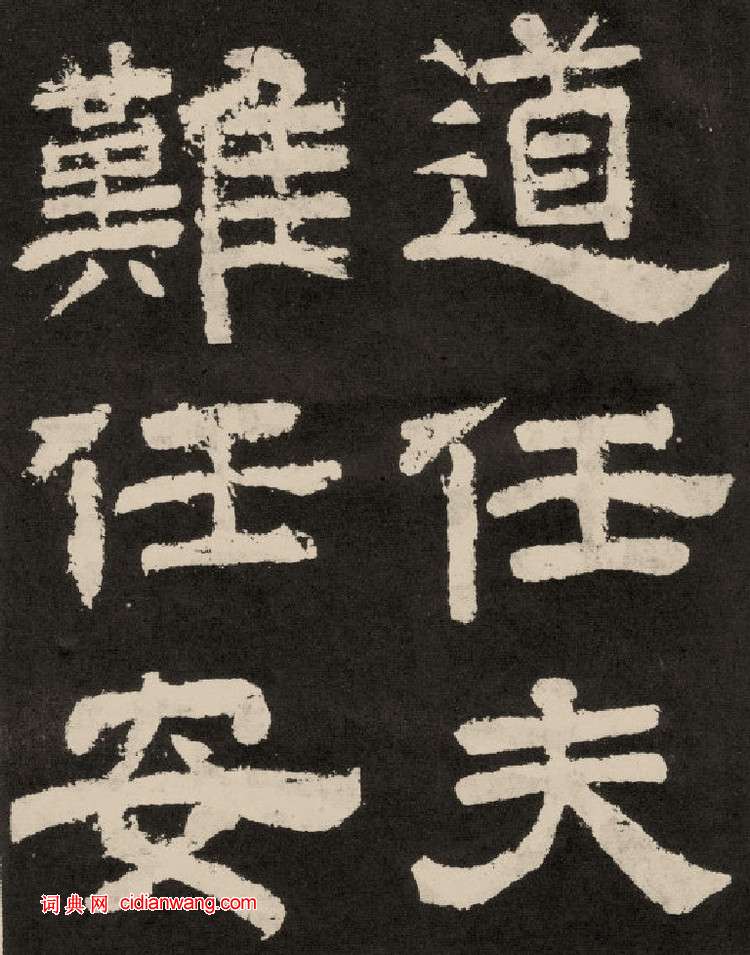 道任夫
難任安
词典网 cidianwang.com